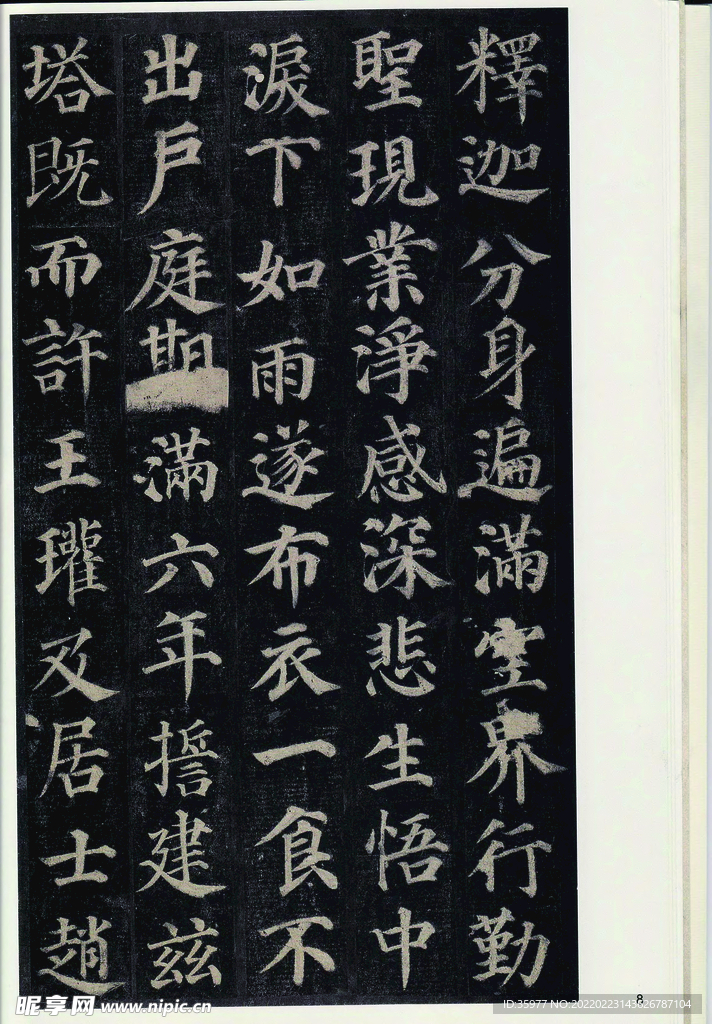 釋迦分身遍滿空界行勤
聖現業淨感深悲生悟中
淚下如雨遂布衣一食不
出戶庭期滿六年誓建茲
塔既而許王瓘及居士趙
8
昵享网 www.nipic.cn
ID:35977 NO:20220223143626787104